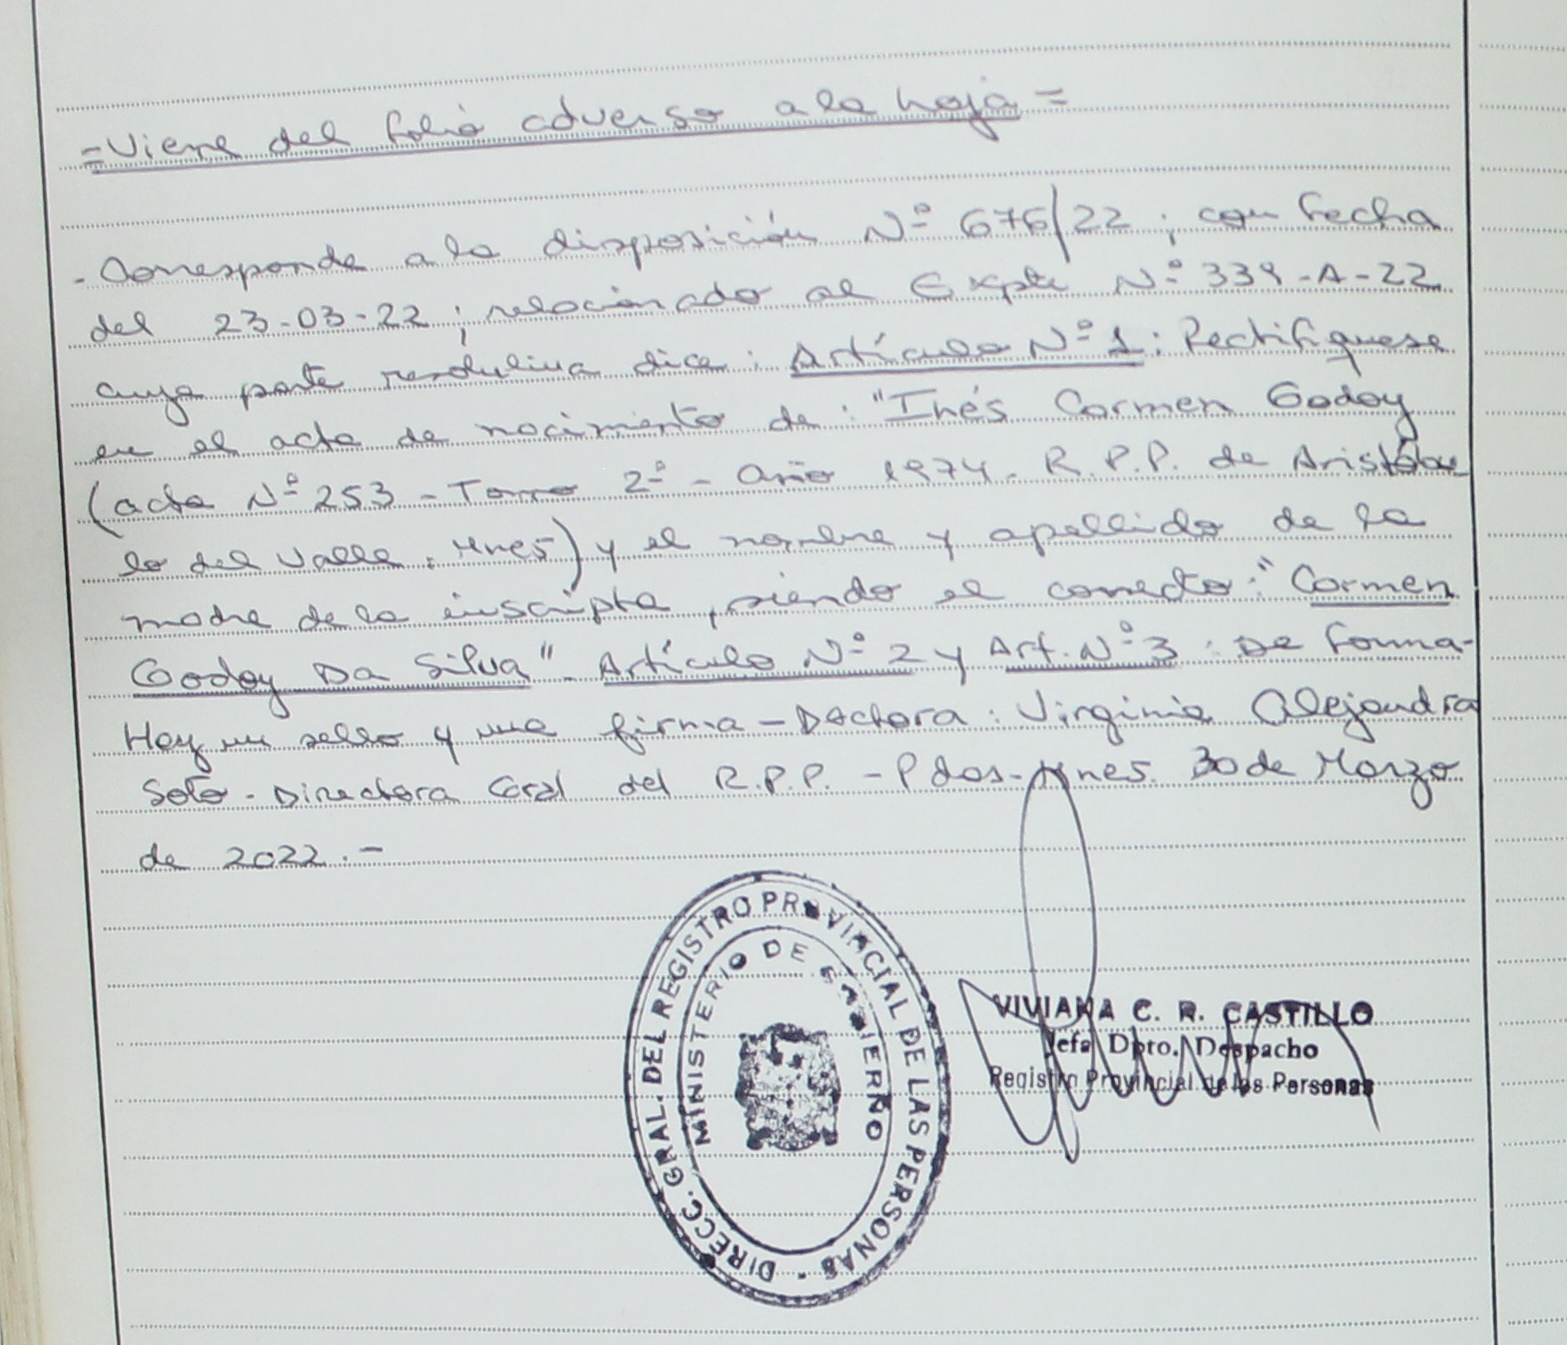 =Viene del folio adverso a la hoja=
- Corresponde a la disposición Nº 676/22; con fecha
del 23-03-22; relacionado al Expte Nº 339-A-22
cuya parte resolutiva dice: Artículo Nº 1: Rectifíquese
en el acta de nacimiento de: "Inés Carmen Godoy
(acta Nº 253 - Tomo 2º - año 1974. R.P.P. de Aristóbu
lo del Valle. Mnes) y el nombre y apellido de la
madre de la inscripta, siendo el correcto: "Carmen
Godoy Da Silva". Artículo Nº 2 y Art. Nº 3: De forma-
Hay un sello y una firma - Doctora: Virginia Alejandra
Soto - Directora Gral del R.P.P. - Pdas-Mnes. 30 de Marzo
de 2022.-
DIRECC. GRAL. DEL REGISTRO PROVINCIAL DE LAS PERSONAS -
MINISTERIO DE GOBIERNO
VIVIANA C. R. CASTILLO
Jefa Dpto. Despacho
Registro Provincial de las Personas